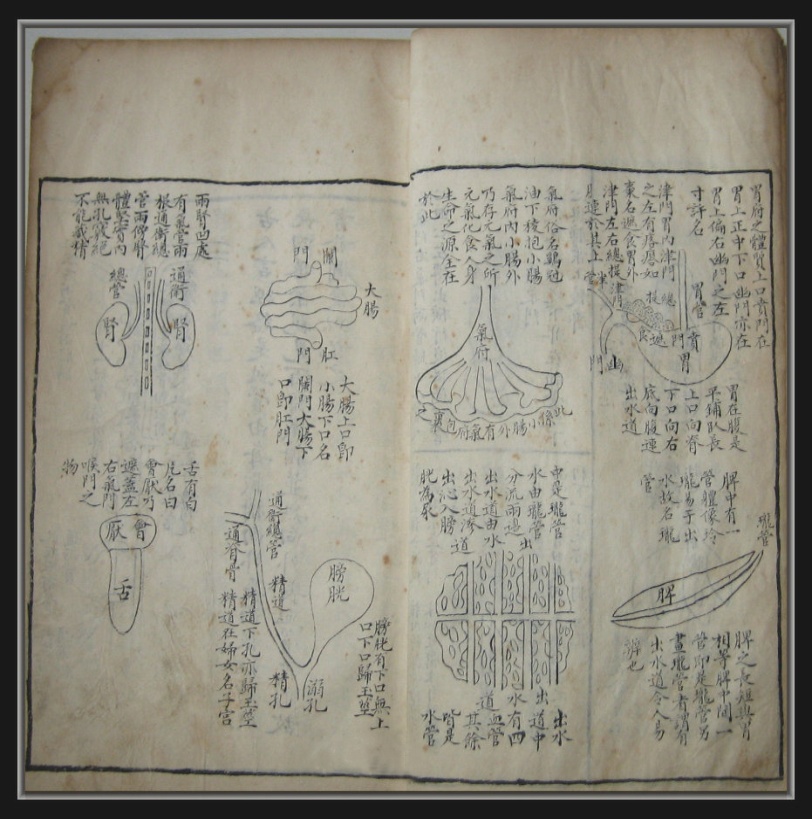 胃府之體質上口賁門在
胃上正中下口幽門亦在
胃上偏右幽門之左
寸許名
津門胃內津門
之左有疙瘩如
棗名遮食胃外
津門左右總提
連於其上
胃管
總提
賁門
遮食
胃
津門
幽門
胃在腹是
平鋪臥長
上口向脊
下口向右
底向腹連
出水道
脾中有一
管體像玲
瓏易于出
水故名瓏
管
瓏管
脾
脾之長短與胃
相等脾中間一
管即是瓏管另
畫瓏管者謂有
出水道令人易
辨也
氣府俗名鷄冠
油下稜抱小腸
氣府內小腸外
乃存元氣之所
元氣化食人身
生命之源全在
於此
氣府
此係小腸外有氣府包裹
中是瓏管
水由瓏管
分流兩邊
出水道由水
出水道滲
出沁入膀
胱為尿
出水道
出水道中
有四
血管
其餘
皆是
水管
闌門
大腸
肛門
大腸上口即
小腸下口名
闌門大腸下
口即肛門
膀胱
膀胱有下口無上
口下口歸玉莖
溺孔
精孔
精道
通衛總管
通脊骨
精道下孔亦歸玉莖
精道在婦女名子宮
兩腎凹處
有氣管兩
根通衛總
管兩傍腎
體堅實內
無孔竅絕
不能藏精
通衛
總管
腎
腎
舌有白
片名曰
會厭乃
遮蓋左
右氣門
喉門之
物
會厭
舌